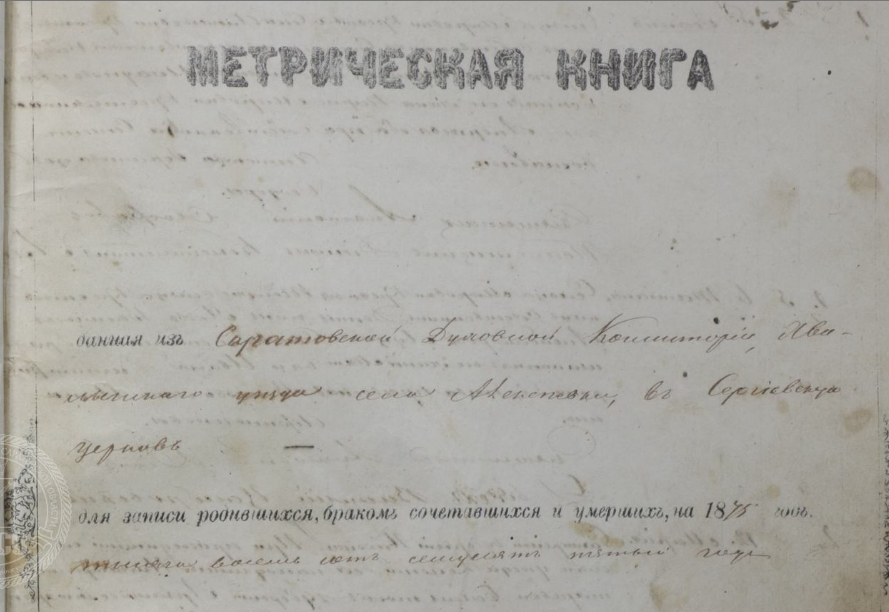 МЕТРИЧЕСКАЯ КНИГА
данная изъ Саратовской Духовной Консисторіи, Хва-
лынскаго уѣзда села Алексѣевки, въ Сергіевскую
церковь —
для записи родившихся, бракомъ сочетавшихся и умершихъ, на 1875 годъ.
тысяча восемь сотъ семьдесятъ пятый годъ